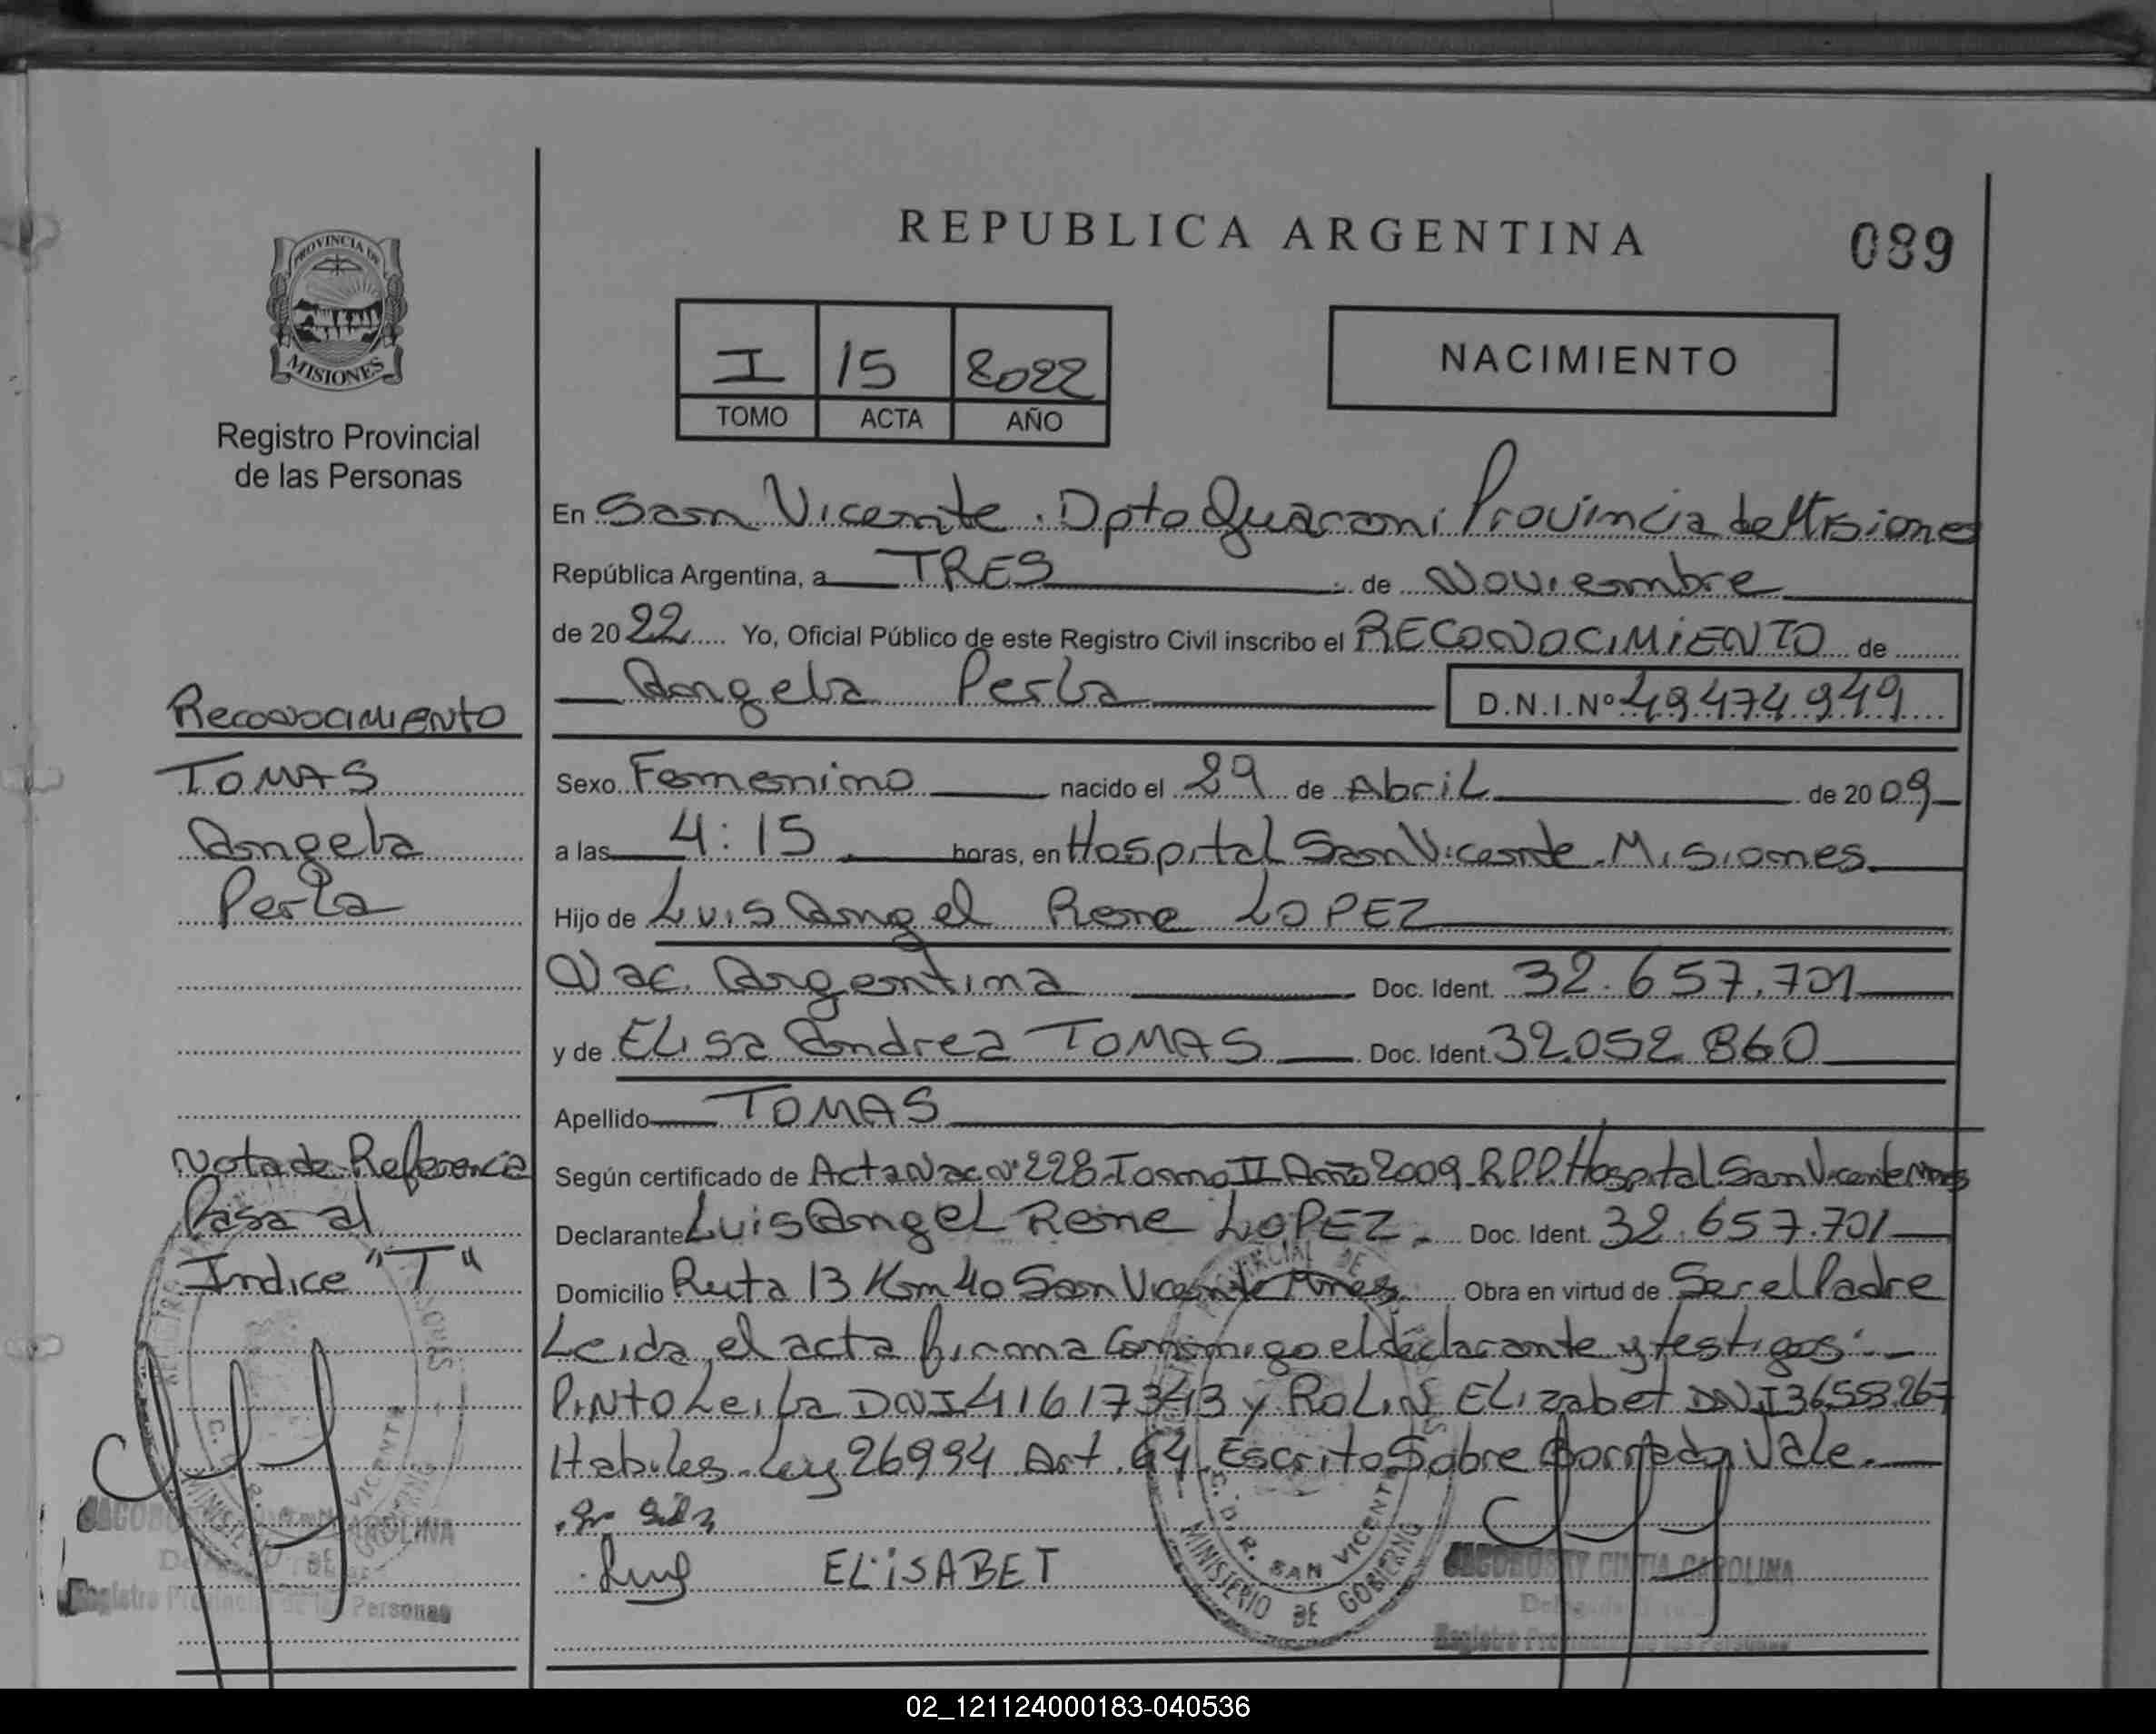 REPUBLICA ARGENTINA
089
PROVINCIA DE
MISIONES
Registro Provincial
de las Personas
I 15 2022
TOMO ACTA AÑO
NACIMIENTO
En San Vicente. Dpto Guarani Provincia de Misiones
República Argentina, a TRES de Noviembre
de 2022 Yo, Oficial Público de este Registro Civil inscribo el RECONOCIMIENTO de
Angela Perla D.N.I.Nº 49474949
Sexo Femenino nacido el 29 de Abril de 2009
a las 4:15 horas, en Hospital San Vicente. Misiones
Hijo de Luis Angel Rene LOPEZ
Nac. Argentina Doc. Ident. 32.657.701
y de Elisa Andrea TOMAS Doc. Ident. 32.052.860
Apellido TOMAS
Según certificado de Acta Nac Nº 228 Tomo II Año 2009 R.P.P. Hospital San Vicente Mnes
Declarante Luis Angel Rene LOPEZ Doc. Ident. 32.657.701
Domicilio Ruta 13 Km 40 San Vicente Mnes Obra en virtud de Ser el Padre
Leida, el acta firma Conmigo el declarante y testigos:
PiNto Leila DNI 41617343 y ROLiN ELizabet DNI
Habiles. Ley 26994 Art. 64. Escrito Sobre Borrado, Vale.
ELiSABET
RECONOCiMiENTO
TOMAS
Angela
Perla
Nota de Referencia
Pasa al
Indice "T"
C. D. R. SAN VICENTE
MINISTERIO DE GOBIERNO
CINTIA CAROLINA
Registro Provincial de las Personas
02_121124000183-040536